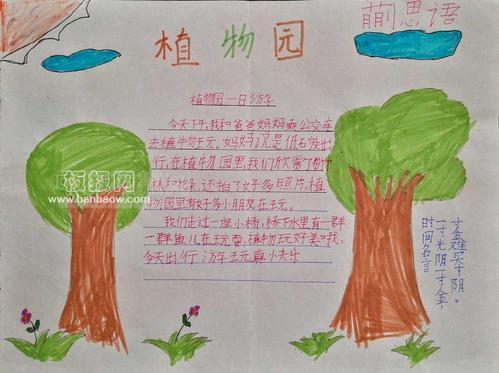 植物园
蒯思语
植物园一日游
今天下午,我和爸爸妈妈乘公交车
去植物玩,妈妈说是低碳出
行,在植物园里,我们欣赏了树
林和花朵,还拍了好多照片,植
物园里有好多小朋友在玩。
我们走过一座小桥,桥下水里有一群
一群鱼儿在玩耍,植物玩好美哦,
今天出行游玩真快乐
时间名言
一寸光阴一寸金,
寸金难买寸光阴。
板报网
www.banbaow.com